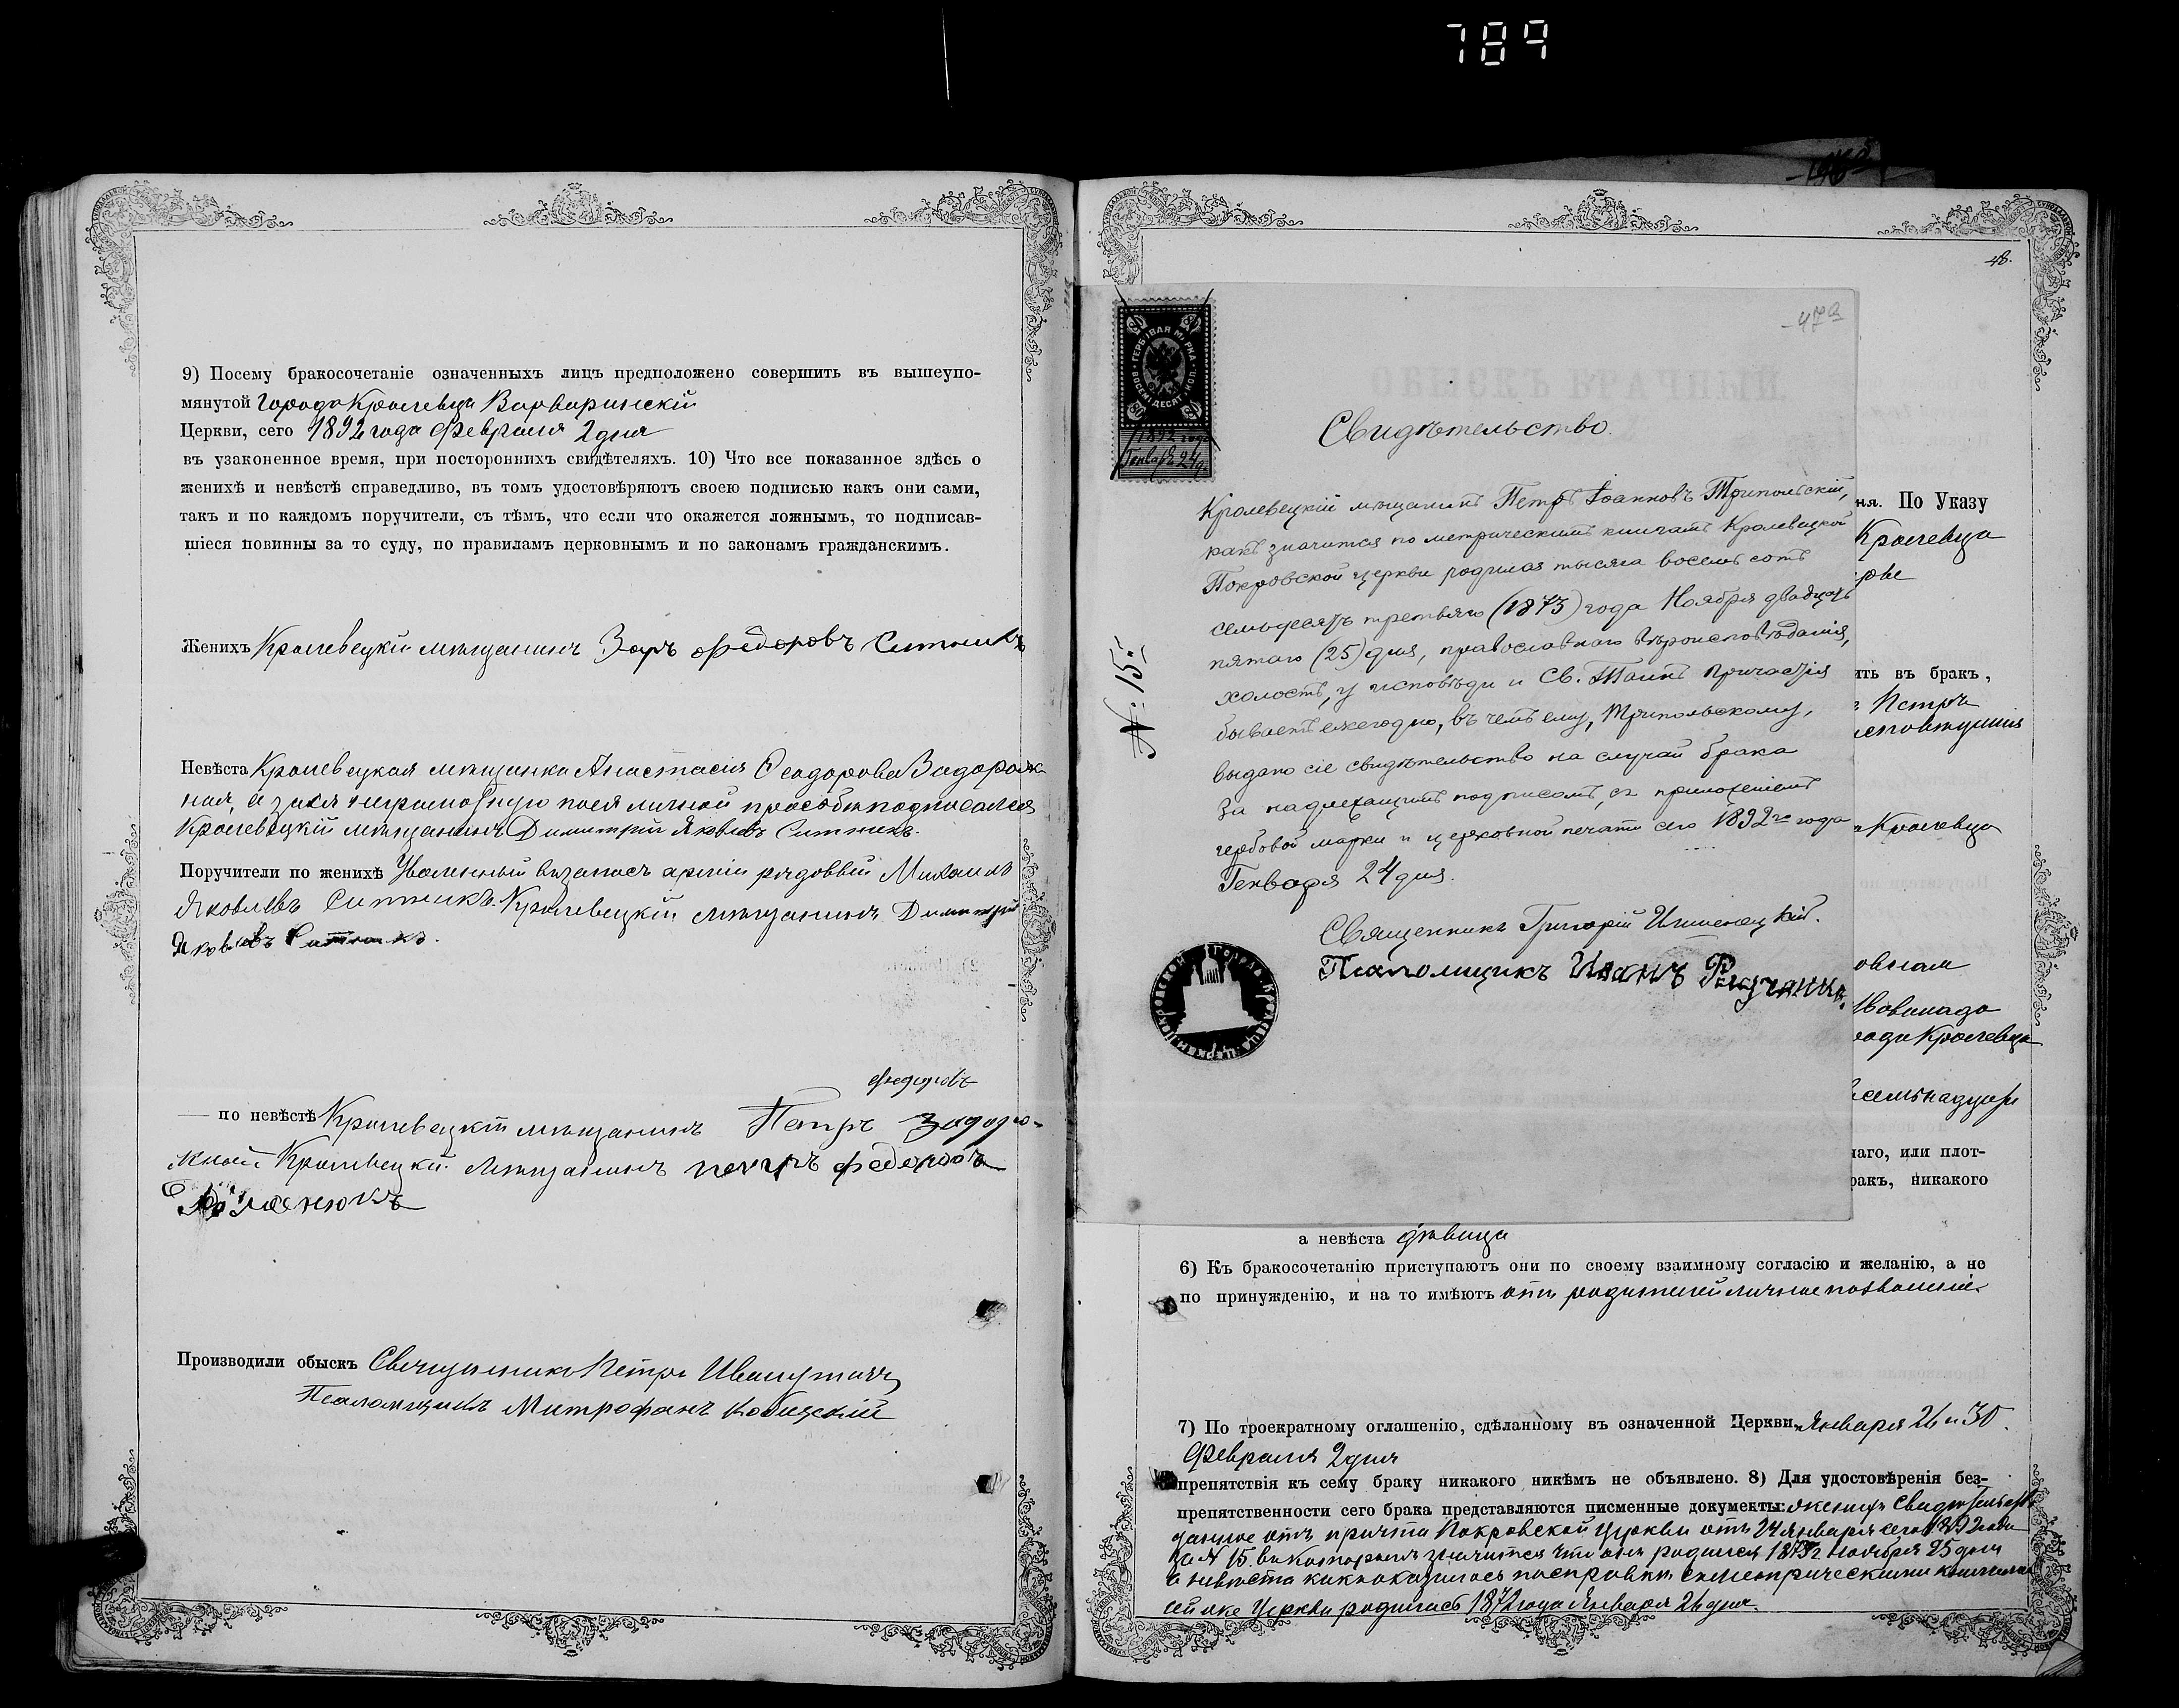 789
9) Посему бракосочетаніе означенныхъ лицъ предположено совершить въ вышеупо-
мянутой Города Кролевца Варваринскій
Церкви, сего 1892 года Февраля 2 дня
въ узаконенное время, при постороннихъ свидѣтеляхъ. 10) Что все показанное здѣсь о
женихѣ и невѣстѣ справедливо, въ томъ удостовѣряютъ своею подписью какъ они сами,
такъ и по каждомъ поручители, съ тѣмъ, что если что окажется ложнымъ, то подписав-
шіеся повинны за то суду, по правиламъ церковнымъ и по законамъ гражданскимъ.
Женихъ Кролевецкій мѣщанинъ Федоровъ Ситникъ
Невѣста Кролевецкая мѣщанка Анастасія Ѳеодорова Задорож-
ная, а за нея неграмотную по ея личной просьбѣ подписался
Кролевецкій мѣщанинъ Димитрій Яковлевъ Ситникъ.
Поручители по женихѣ Уволенный въ запасъ арміи рядовой Михаилъ
Яковлевъ Ситникъ. Кролевецкій мѣщанинъ Димитрій
Яковлевъ Ситникъ.
федоровъ
— по невѣстѣ Кролевецкій мѣщанинъ Петръ Задоро-
жной Кролевецкій мѣщанинъ петръ федоровъ
Производили обыскъ Священникъ Петръ
Псаломщикъ Митрофанъ
48.
47а
ГЕРБОВАЯ МАРКА
ВОСЕМЬДЕСЯТ КОП.
80
1892 года
Генвар. 24 д.
Свидѣтельство.
№: 15.
Кролевецкій мѣщанинъ Петръ Іоанновъ Трипольскій,
какъ значится по метрическимъ книгамъ Кролевецкой
Покровской церкви родился тысяча восемь сотъ
семьдесятъ третьяго (1873) года Ноября двадцать
пятаго (25) дня, православнаго вѣроисповѣданія,
холостъ, у исповѣди и Св. Таинъ Причастія
бываетъ ежегодно, въ чемъ ему, Трипольскому,
выдано сіе свидѣтельство на случай брака
За надлежащимъ подписомъ, съ приложеніемъ
гербовой марки и церковной печати сего 1892го года
Генваря 24 дня.
Священникъ Григорій
Псаломщикъ Иванъ
ня. По Указу
Кролевца
ить въ бракъ,
Петръ
Кролевца
Кролевца
наго, или плот-
ракъ, никакого
а невѣста дѣвица
6) Къ бракосочетанію приступаютъ они по своему взаимному согласію и желанію, а не
по принужденію, и на то имѣютъ отъ родителей личное позволеніе
7) По троекратному оглашенію, сдѣланному въ означенной Церкви Января 26 и 30.
Февраля 2 дня
препятствія къ сему браку никакого никѣмъ не объявлено. 8) Для удостовѣренія без-
препятственности сего брака представляются писменные документы: женихъ Свидѣтельство
данное отъ причта Покровской церкви отъ 24 Января сего 1892 года
за № 15. въ которомъ значится что онъ родился 1873 г. Ноября 25 дня
а невѣста какъ оказалось по справкѣ съ метрическими книгами
сей же Церкви родилась 1872 года Января 26 дня.